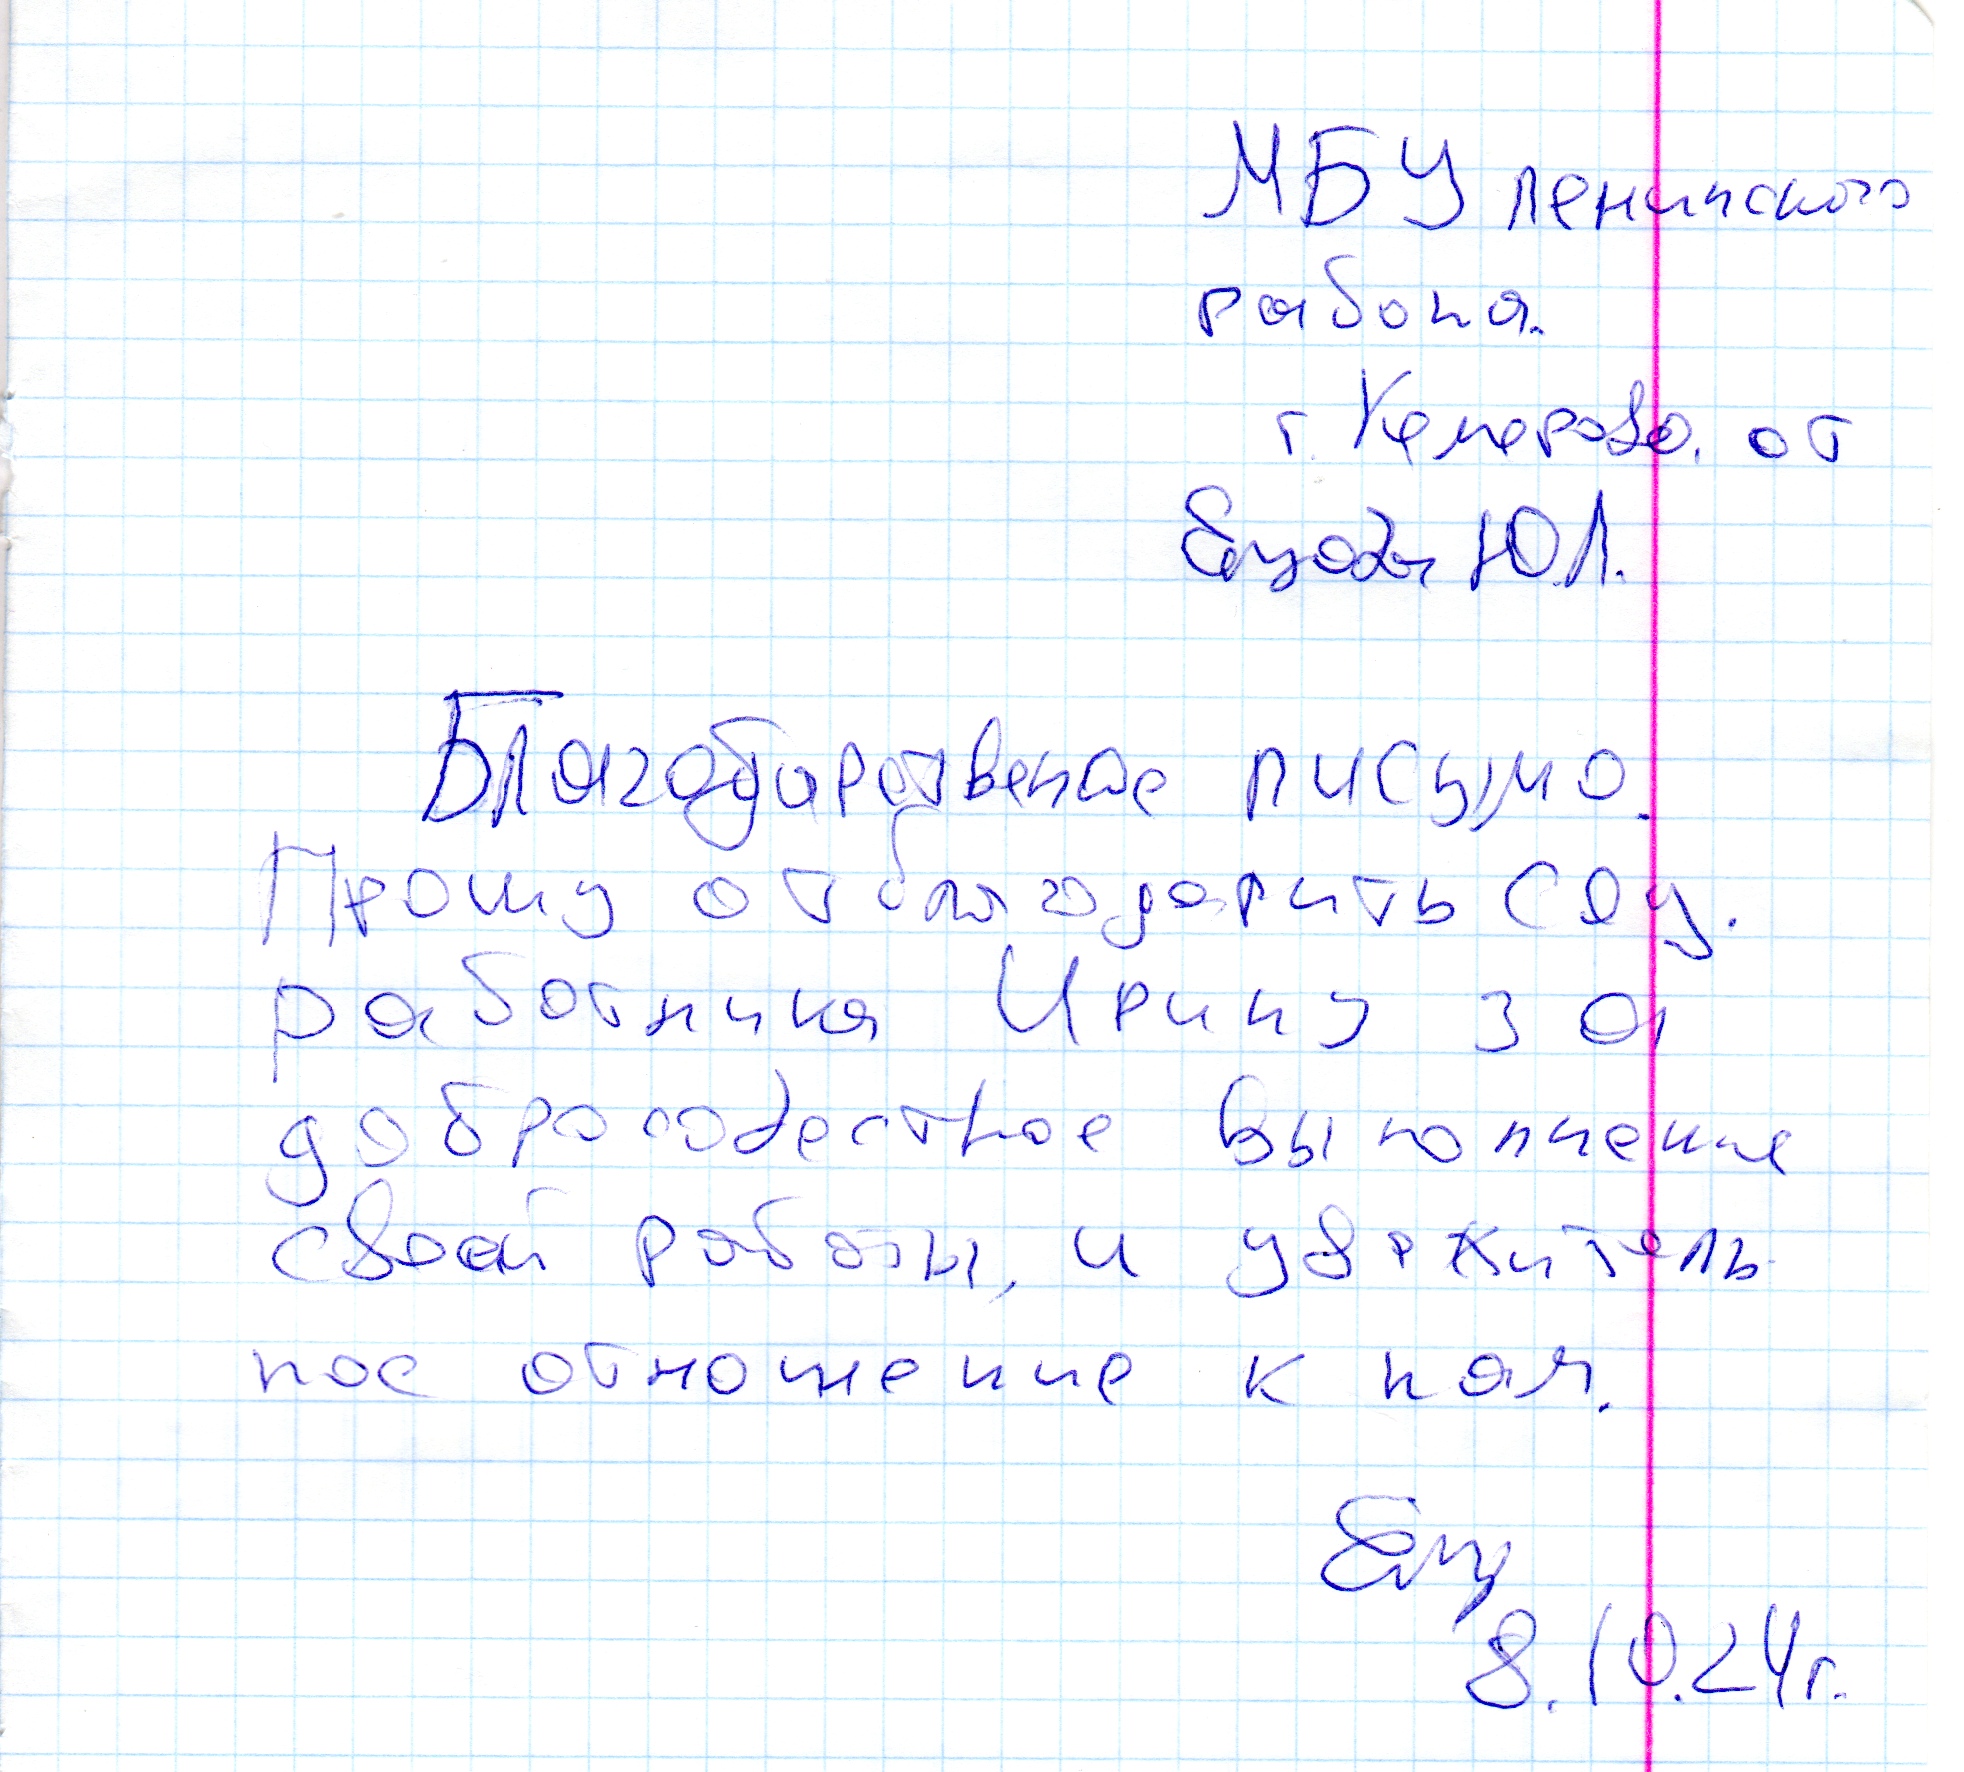 МБУ ленинского
рабона.
г. Кемерово. от
Ю.Л.
Благодарственое письмо.
Прошу отблагодарить соц.
работника Ирину за
добросовестное выполнение
своей работы, и уважитель
ное отношение к нам.
8.10.24г.